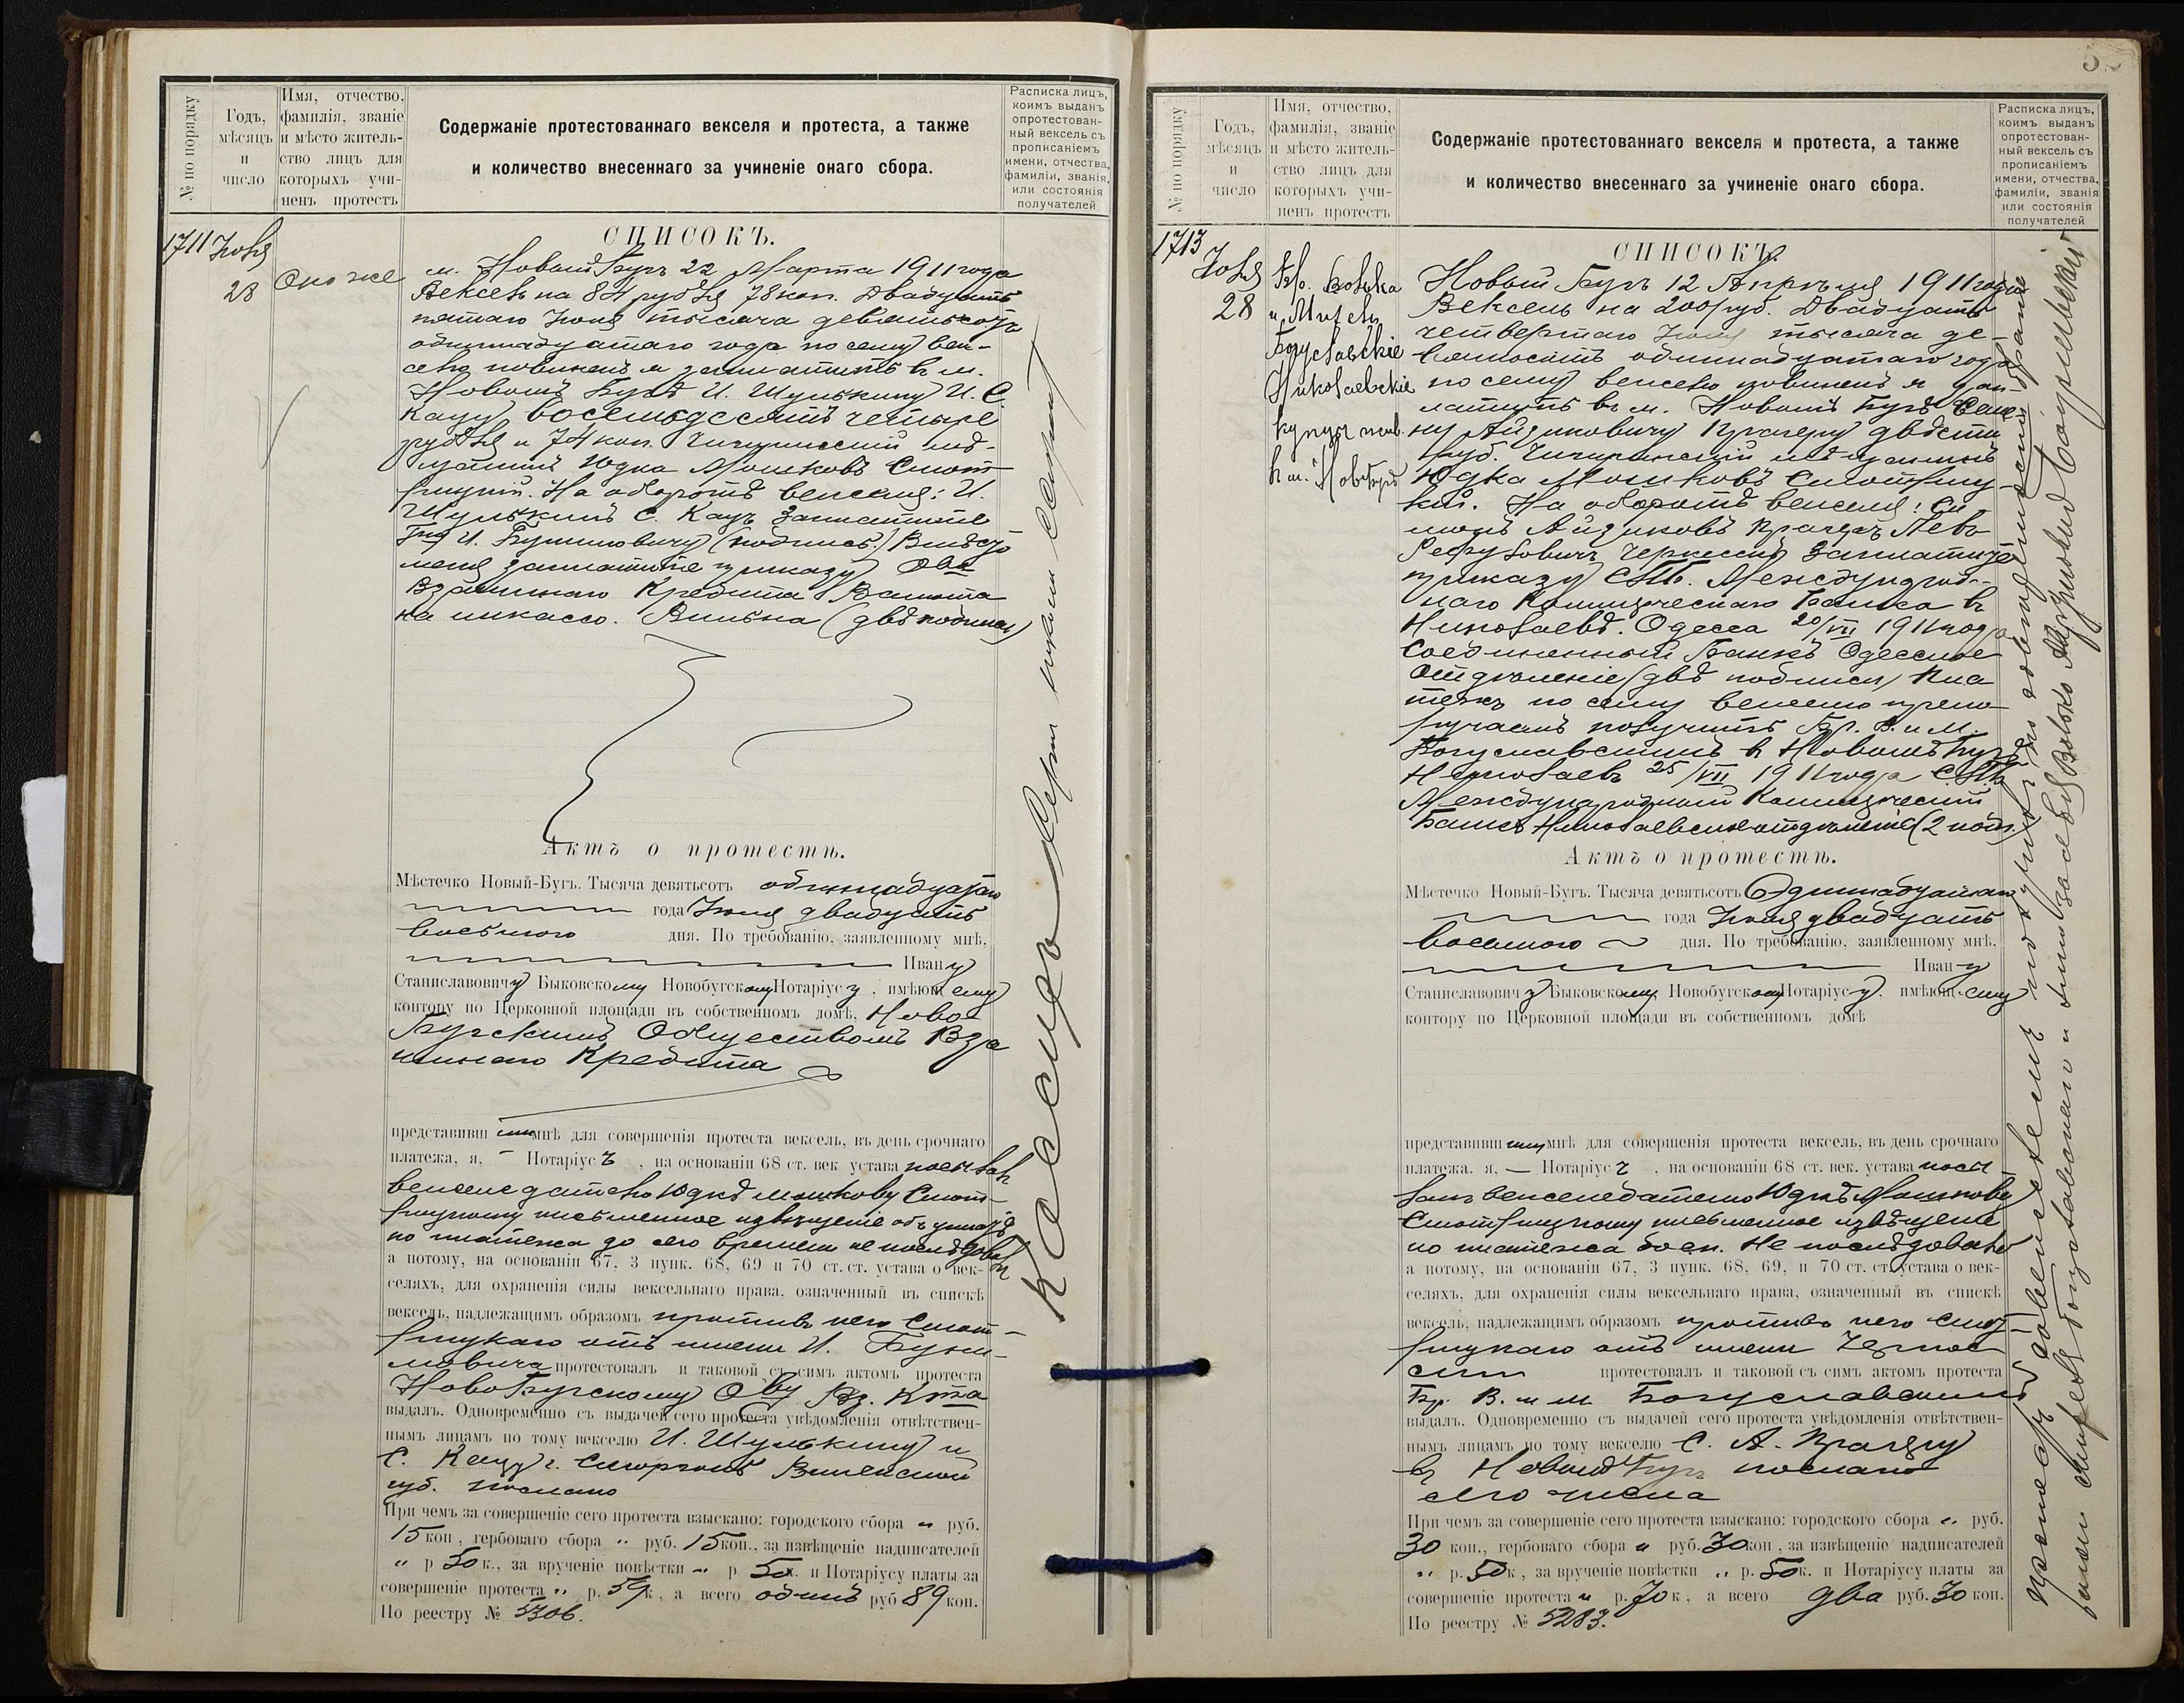 № по порядку
Годъ,
мѣсяцъ
и
число
Имя, отчество,
фамилія, званіе
и мѣсто житель-
ство лицъ для
которыхъ учи-
ненъ протестъ
Содержаніе протестованнаго векселя и протеста, а также
и количество внесеннаго за учиненіе онаго сбора.
Расписка лицъ,
коимъ выданъ
опротестован-
ный вексель съ
прописаніемъ
имени, отчества,
фамиліи, званія,
или состоянія
получателей
1711 Іюля
28
Оно же
СПИСОКЪ.
м. Новый Бугъ 22 Марта 1911 года
Вексель на 84 рубля 78 коп. Двадцать
пятаго Іюля тысяча девятьсотъ
одиннадцатаго года по сему век-
селю повиненъ я заплатить въ м.
Новомъ Бугѣ И. Шулькину И. С.
Кацу восемьдесятъ четыре
рубля и 74 коп. Чигиринскій мѣ-
щанинъ Юдка Мошковъ Смот-
рицкій. На оборотѣ векселя: И.
Шулькинъ С. Кацъ Заплатите
И. Бунимовичу (подпись) Вмѣсто
меня заплатите приказу Ова
Взаимнаго Кредита Валюта
на инкассо. Вильна (двѣ подписи)
Актъ о протестѣ.
Мѣстечко Новый-Бугъ. Тысяча девятьсотъ одиннадцатаго
года Іюля двадцать
восьмого дня. По требованію, заявленному мнѣ,
Ивану
Станиславовичу Быковскому Новобугскому Нотаріусу, имѣющему
контору по Церковной площади въ собственномъ домѣ, Ново
Бугскимъ Обществомъ Вза
имнаго Кредита
представившимъ мнѣ для совершенія протеста вексель, въ день срочнаго
платежа, я, - Нотаріусъ, на основаніи 68 ст. век устава послалъ
векселедателю Юдкѣ Мошкову Смот-
рицкому письменное извѣщеніе объ уплатѣ
но платежа до сего времени не послѣдовало
а потому, на основаніи 67, 3 пунк. 68, 69 и 70 ст. ст. устава о век-
селяхъ, для охраненія силы вексельнаго права, означенный въ спискѣ
вексель, надлежащимъ образомъ противъ него Смот-
рицкаго отъ имени И. Буни-
мовича протестовалъ и таковой съ симъ актомъ протеста
НовоБугскому Ову Вз. Кта
выдалъ. Одновременно съ выдачей сего протеста увѣдомленія отвѣтствен-
нымъ лицамъ по тому векселю И. Шулькину и
С. Кацу г. Сморгонь Виленской
губ. послано
При чемъ за совершеніе сего протеста взыскано: городского сбора „ руб.
15 коп, гербоваго сбора „ руб. 15 коп., за извѣщеніе надписателей
„ р 50 к., за врученіе повѣстки „ р 50 к. и Нотаріусу платы за
совершеніе протеста „ р. 59 к, а всего одинъ руб 89 коп.
По реестру № 5306.
Кассиръ
№ по порядку
Годъ,
мѣсяцъ
и
число
Имя, отчество,
фамилія, званіе
и мѣсто житель-
ство лицъ для
которыхъ учи-
ненъ протестъ
Содержаніе протестованнаго векселя и протеста, а также
и количество внесеннаго за учиненіе онаго сбора.
Расписка лицъ,
коимъ выданъ
опротестован-
ный вексель съ
прописаніемъ
имени, отчества,
фамиліи, званія
или состоянія
получателей
1713
Іюля
28
Бр. Волька
и Михель
Богуславскіе
Николаевскіе
купцы
СПИСОКЪ.
Новый Бугъ 12 Апрѣля 1911 года
Вексель на 200 руб. Двадцать
четвертаго Іюля тысяча де-
вятьсотъ одиннадцатаго года
по сему векселю повиненъ я зап-
латить въ м. Новомъ Бугѣ Симо-
ну Айзиковичу двѣсти
руб. Чигиринскій мѣщанинъ
Юдка Мошковъ Смотриц-
кій. На оборотѣ векселя: Си
монъ Айзиковъ Левъ
Заплатите
приказу СПБ. Международ-
наго Коммерческаго Банка въ
Николаевѣ. Одесса 20/VII 1911 года
Соединенный Банкъ Одесское
Отдѣленіе (двѣ подписи) Пла
тежъ по сему векселю препо
ручаемъ получить Бр. В. и М.
Богуславскимъ въ Новомъ Бугѣ
Николаевъ 25/VII 1911 года СПБ
Международный Коммерческій
Банкъ Николаевское отдѣленіе (2 подп.)
Актъ о протестѣ.
Мѣстечко Новый-Бугъ. Тысяча девятьсотъ Одиннадцатаго
года Іюля двадцать
восьмого дня. По требованію, заявленному мнѣ,
Ивану
Станиславовичу Быковскому Новобугскому Нотаріусу, имѣющему
контору по Церковной площади въ собственномъ домѣ
представившему мнѣ для совершенія протеста вексель, въ день срочнаго
платежа. я, — Нотаріусъ, на основаніи 68 ст. век. устава пос
лалъ векселедателю Юдкѣ Мошкову
Смотрицкому письменное извѣщеніе
но платежа Не послѣдовало
а потому, на основаніи 67, 3 пунк. 68, 69, и 70 ст. ст. устава о век-
селяхъ, для охраненія силы вексельнаго права, означенный въ спискѣ
вексель, надлежащимъ образомъ противъ него Смот-
рицкаго отъ имени
протестовалъ и таковой съ симъ актомъ протеста
Бр. В. и М. Богуславскимъ
выдалъ. Одновременно съ выдачей сего протеста увѣдомленія отвѣтствен-
нымъ лицамъ по тому векселю С. А.
въ Новый Бугъ послано
сего числа
При чемъ за совершеніе сего протеста взыскано: городского сбора „ руб.
30 коп., гербоваго сбора „ руб. 30 коп, за извѣщеніе надписателей
„ р. 50 к, за врученіе повѣстки „ р. 50 к. и Нотаріусу платы за
совершеніе протеста „ р. 70 к, а всего два руб. 30 коп.
По реестру № 5283.